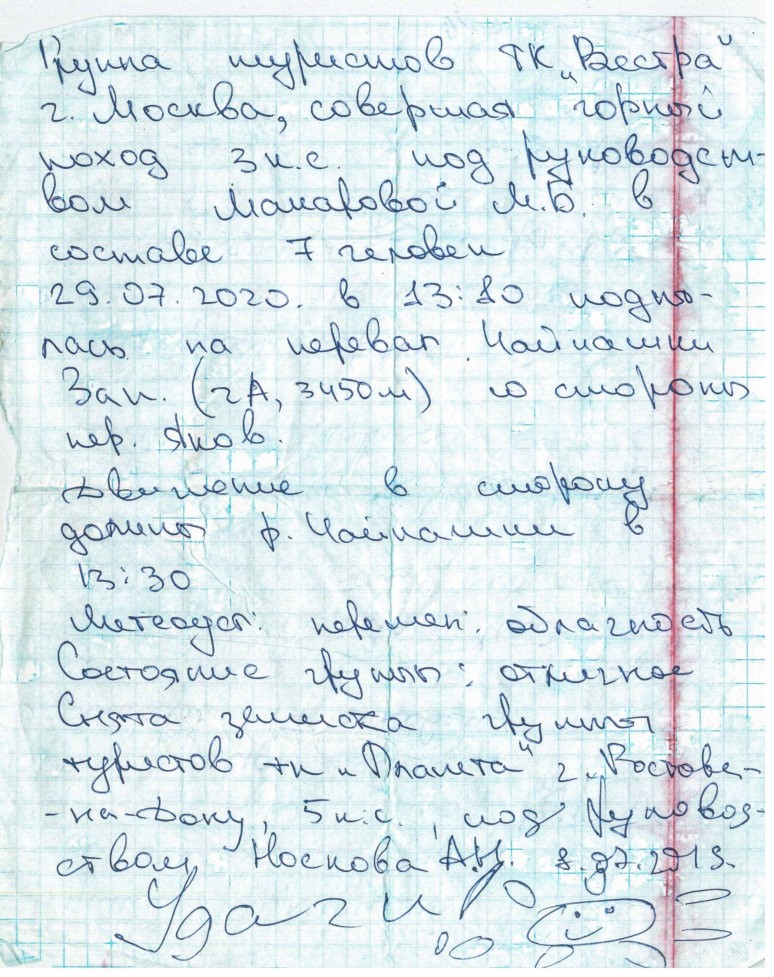 Группа туристов ТК „Вестра"
г. Москва, совершая горный
поход 3 к.с. под руководст-
вом Макаровой М.Б. в
составе 7 человек
29.07.2020. в 13:10 подня-
лась на перевал Чайнашки
Зап. (2А, 3450м) со стороны
пер. Яков.
Движение в сторону
долины р. Чайнашки в
13:30
Метеоусл: перемен. облачность
Состояние группы: отличное
Снята записка группы
туристов тк „Планета" г. Ростова-
-на-Дону, 5 к.с., под руковод-
ством Носкова А.Н. 8.07.2019.
Удачи!